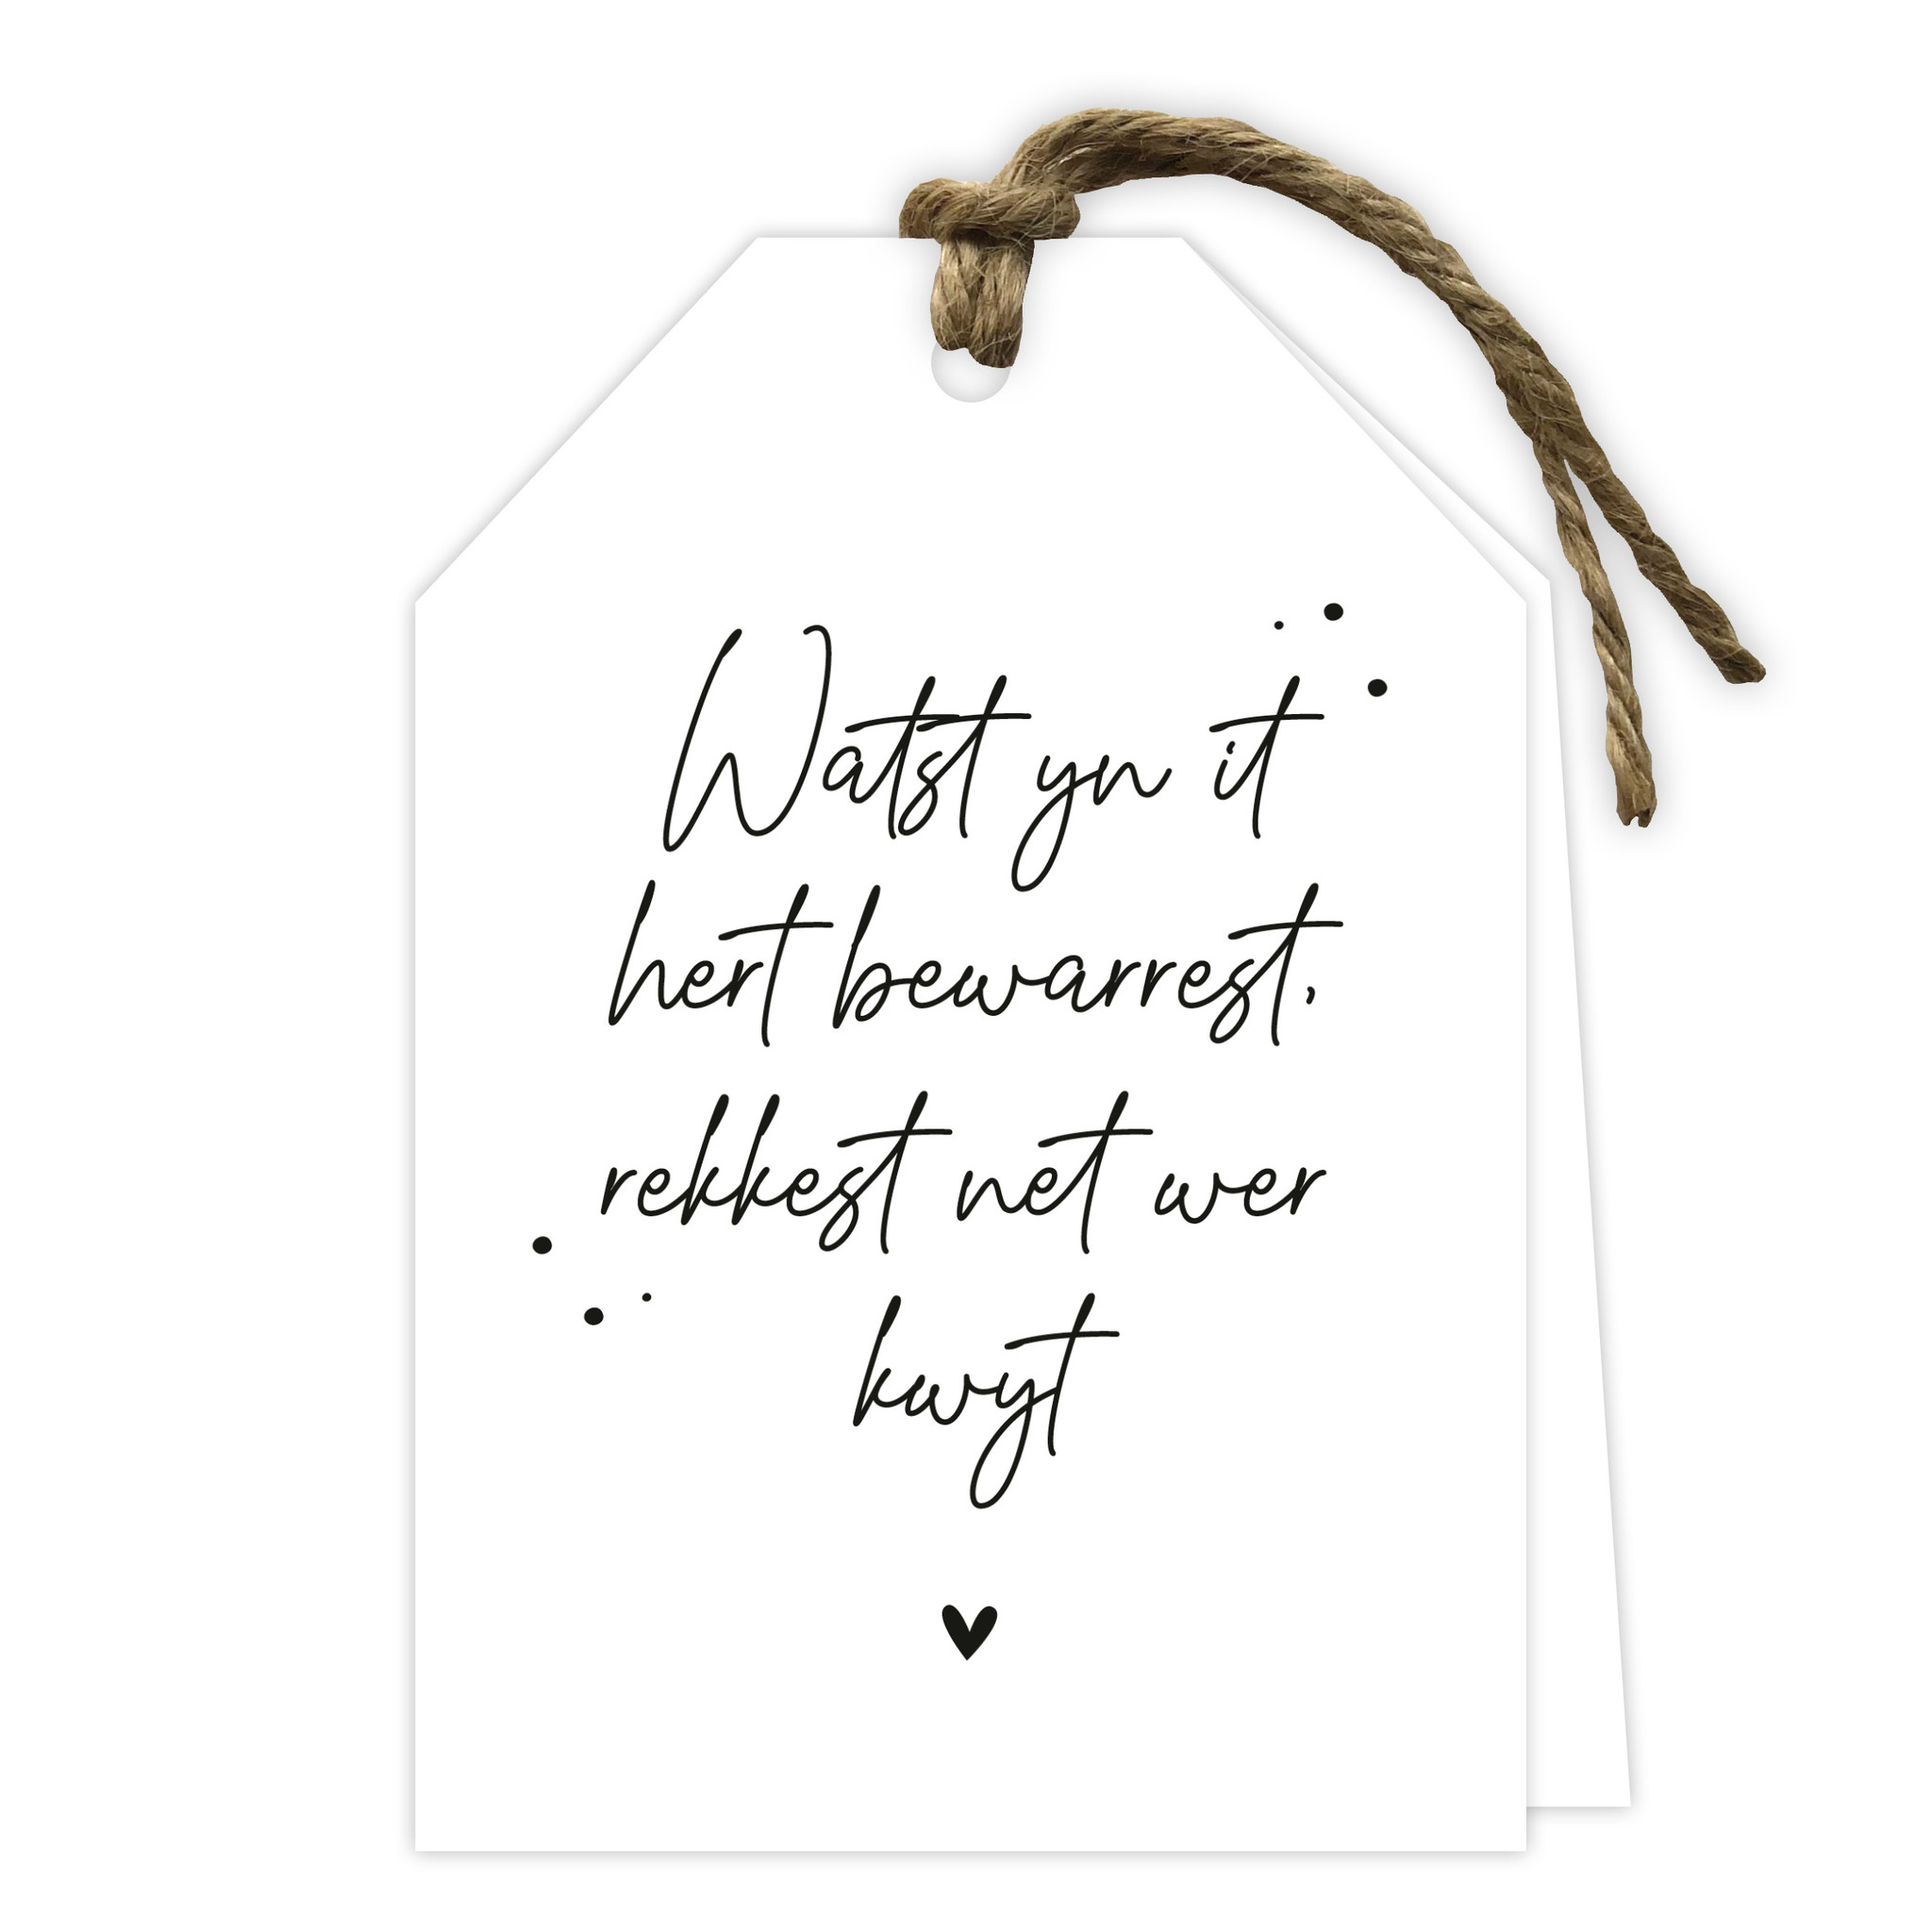 Watst yn it
hert bewarrest,
rekkest net wer
kwyt